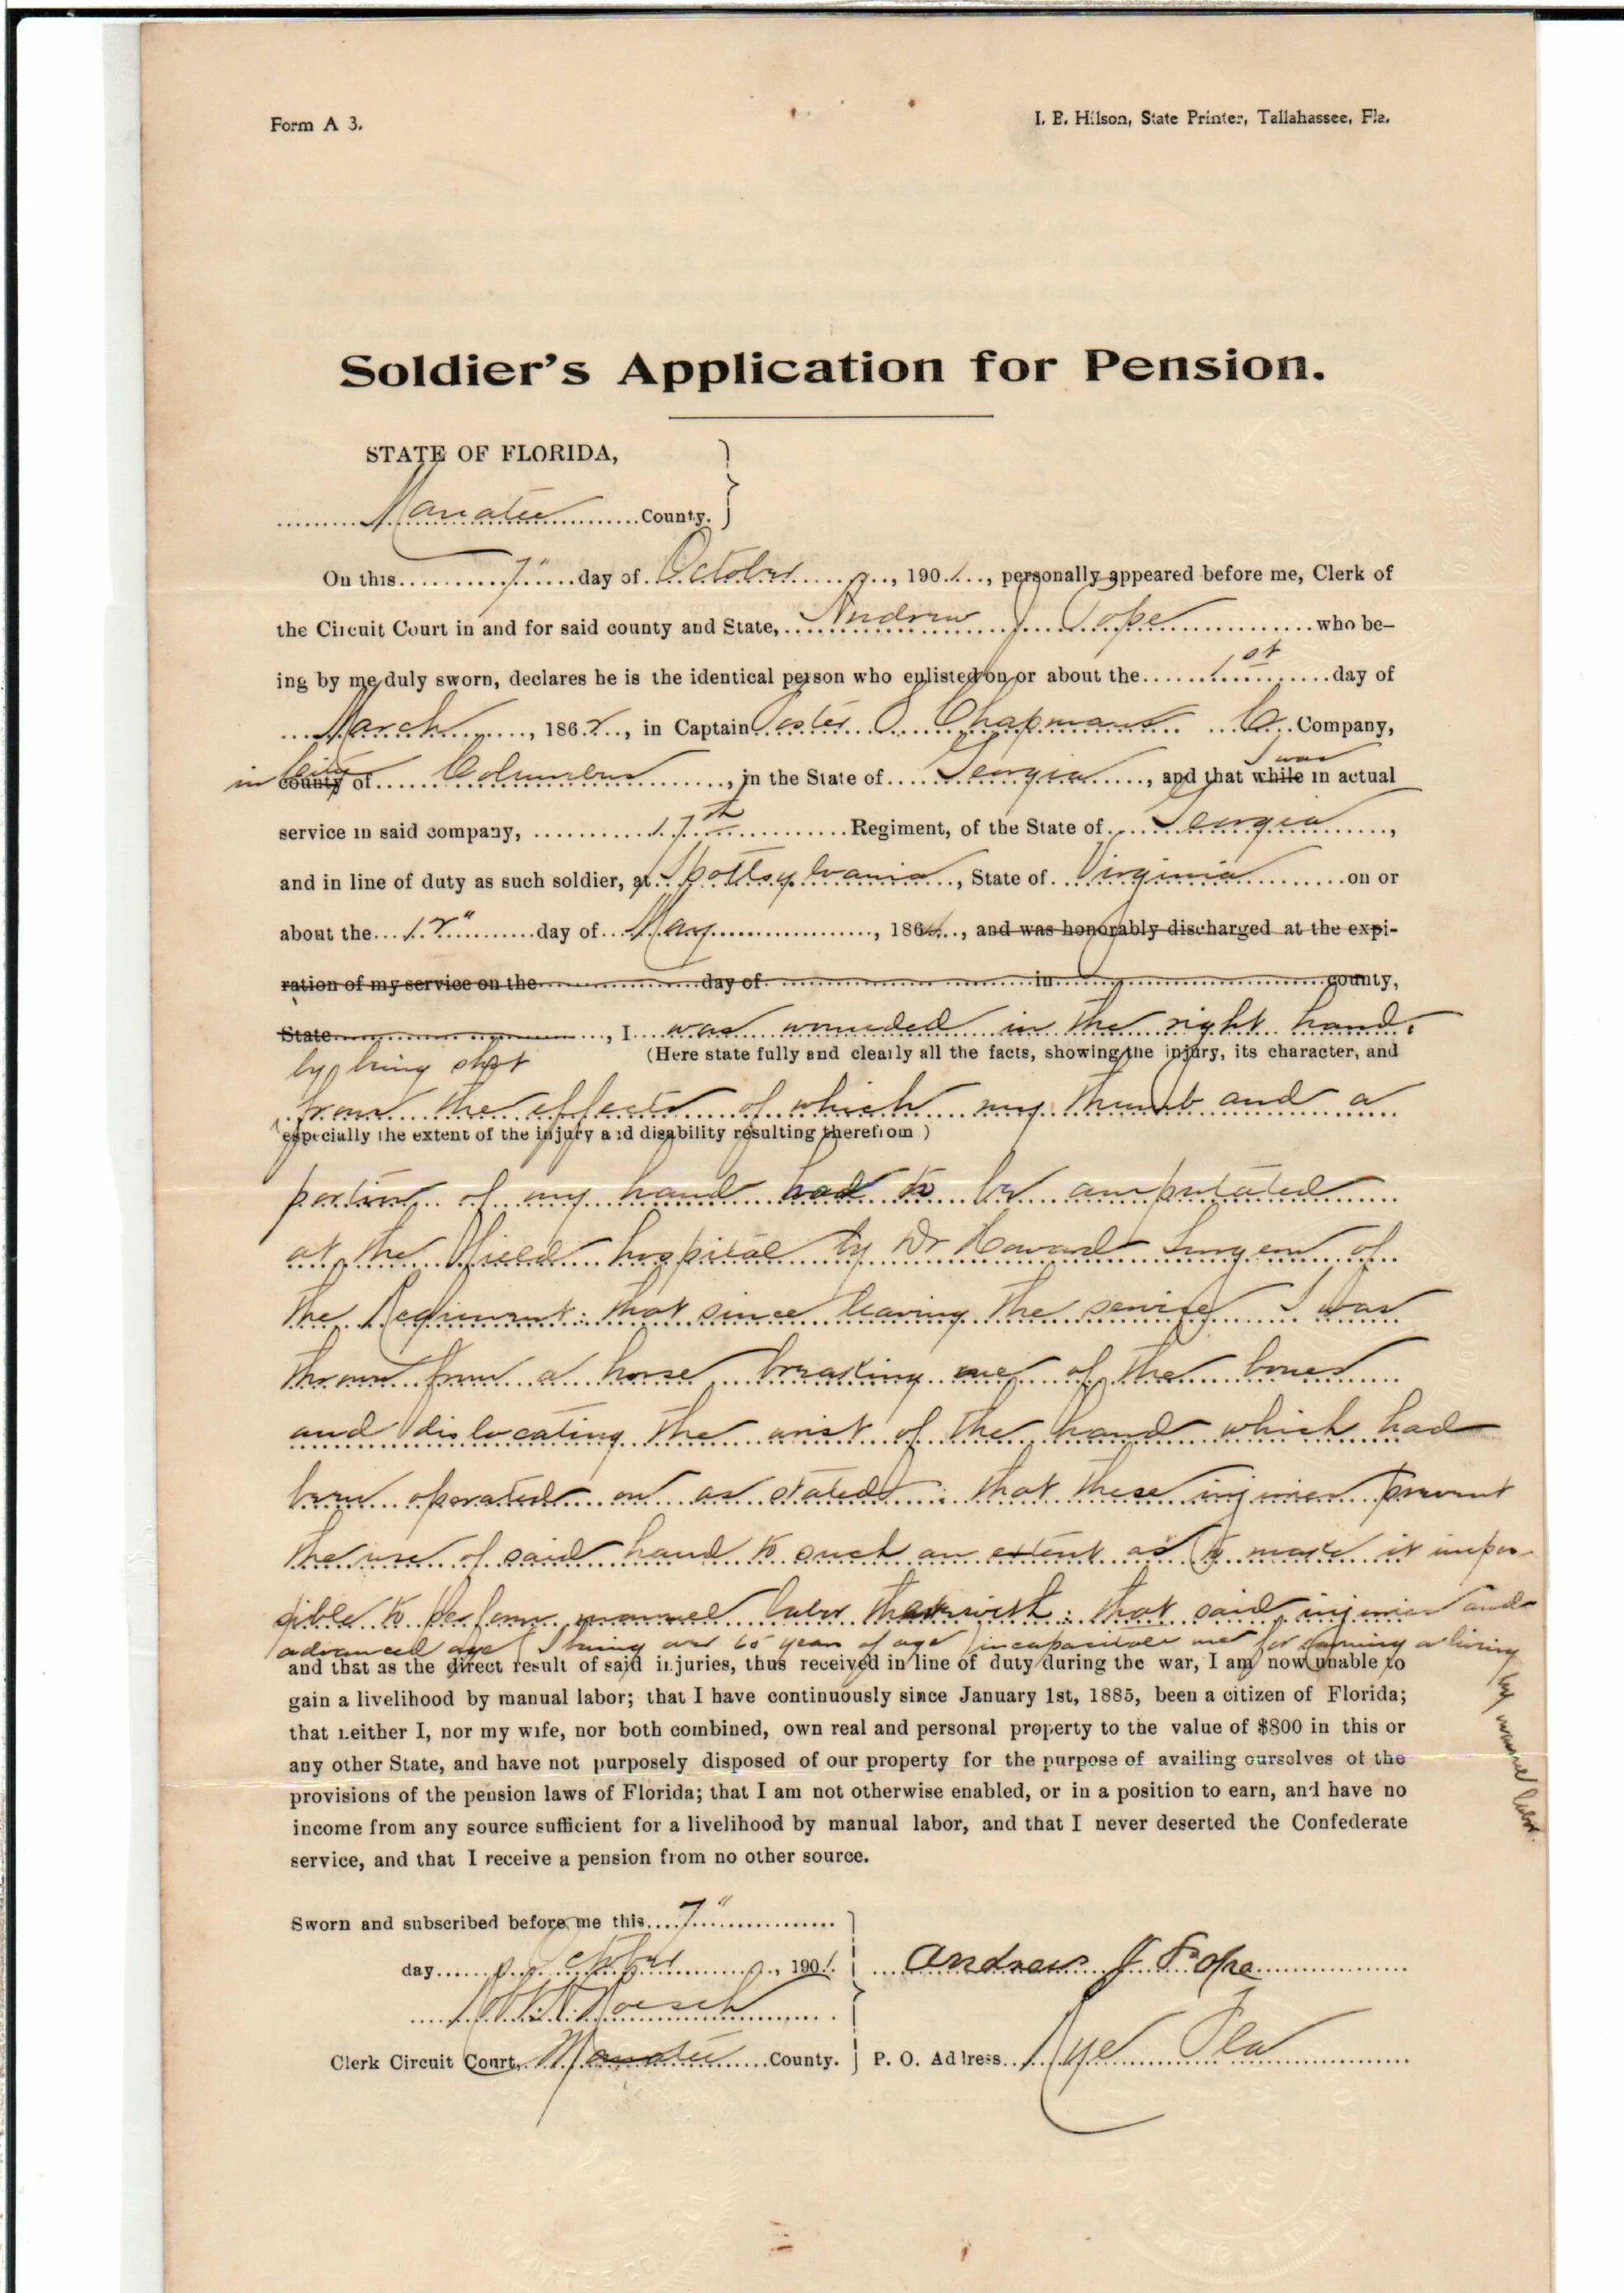 Form A 3.
I. B. Hilson, State Printer, Tallahassee, Fla.
Soldier's Application for Pension.
STATE OF FLORIDA,
Manatee County.
On this 7" day of October, 1901, personally appeared before me, Clerk of
the Circuit Court in and for said county and State, Andrew J Pope who be-
ing by me duly sworn, declares he is the identical person who enlisted on or about the 1st day of
March, 1862, in Captain Chapmans Co. Company,
I was
in City county of Columbus, in the State of Georgia, and that while in actual
service in said company, 17th Regiment, of the State of Georgia,
and in line of duty as such soldier, at Spottsylvania, State of Virginia on or
about the 12" day of May, 1864, and was honorably discharged at the expi-
ration of my service on the day of in county,
State, I was wounded in the right hand.
by being shot (Here state fully and clearly all the facts, showing the injury, its character, and
from the effects of which my thumb and a
especially the extent of the injury and disability resulting therefrom)
portion of my hand had to be amputated
at the field hospital by Dr Howard Surgeon of
the Regiment: that since leaving the service I was
thrown from a horse breaking one of the bones
and dislocating the wrist of the hand which had
been operated on as stated: that these injuries prevent
the use of said hand to such an extent as to make it impos-
sible to perform manuel labor therewith: that said injuries and
advanced age I being over 65 years of age incapacitate me for earning a living
by manuel labor.
and that as the direct result of said injuries, thus received in line of duty during the war, I am now unable to
gain a livelihood by manual labor; that I have continuously since January 1st, 1885, been a citizen of Florida;
that neither I, nor my wife, nor both combined, own real and personal property to the value of $800 in this or
any other State, and have not purposely disposed of our property for the purpose of availing ourselves of the
provisions of the pension laws of Florida; that I am not otherwise enabled, or in a position to earn, and have no
income from any source sufficient for a livelihood by manual labor, and that I never deserted the Confederate
service, and that I receive a pension from no other source.
Sworn and subscribed before me this 7"
day of October, 1901.
Andrew J Pope
Robt H Roesch
Clerk Circuit Court, Manatee County.
P. O. Address Rye Fla